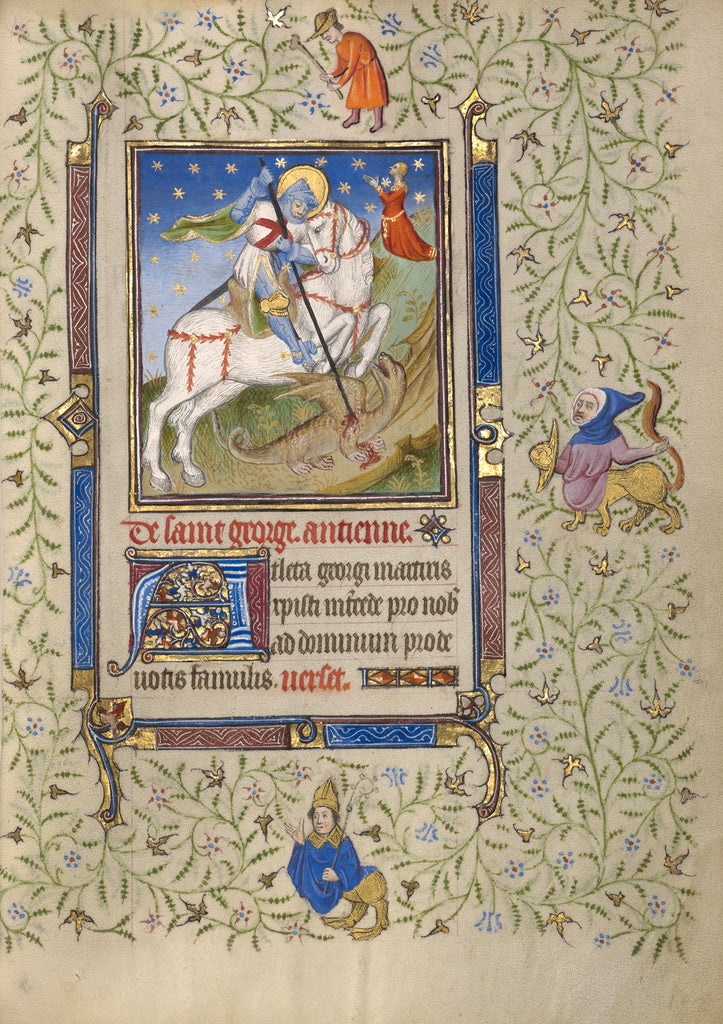 De saint george. antienne.
Atleta georgi martiris
xpisti int̄cede pro nob̄
ad dominum prode
uotis famulis. uerset.